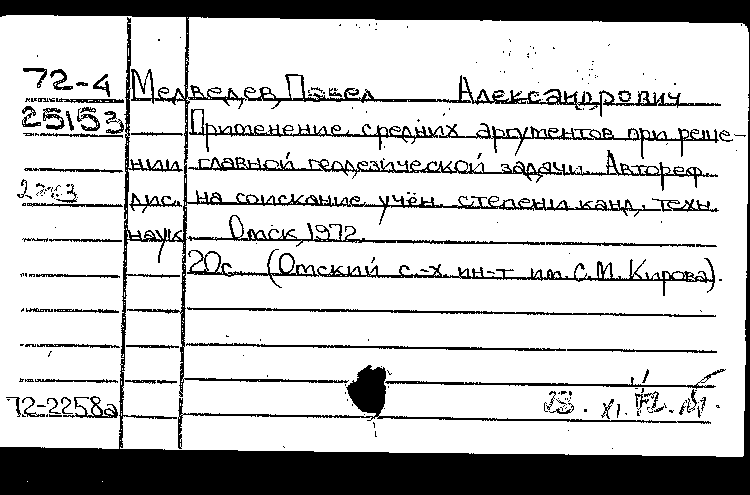 72-4 Медведев, Павел Александрович
25153 Применение средних аргументов при реше-
нии главной геодезической задачи. Автореф.
дис. на соискание учён. степени канд. техн.
наук Омск, 1972.
20с. (Омский с.-х. ин-т им. С.М. Кирова).
72-2258а 28. XI. 72.